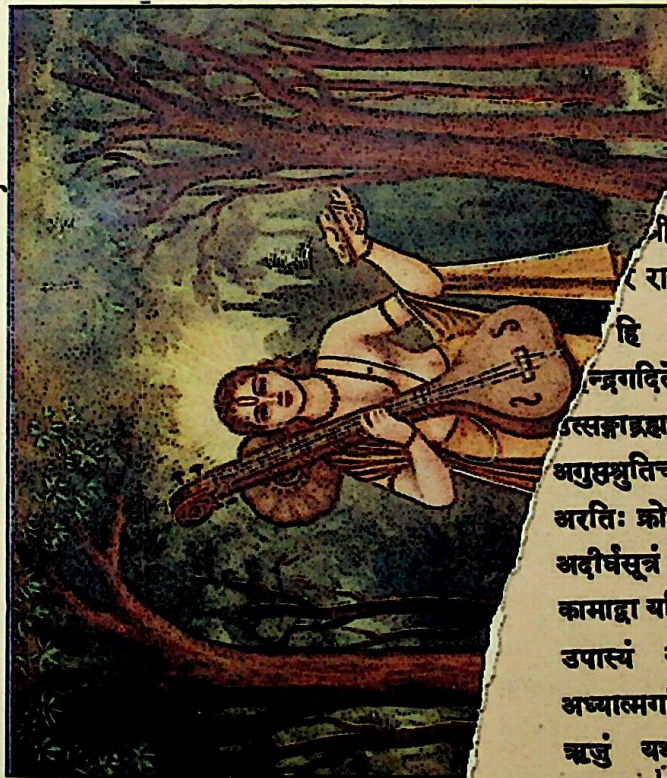 र रा
हि
न्द्रगदिते
उत्सङ्गाद्ब्रह्म
अगुप्तश्रुतिच
अरतिः क्रो
अदीर्घसूत्रं
कामाद्वा यदि
उपास्यं
अध्यात्मग
ऋजुं यथ